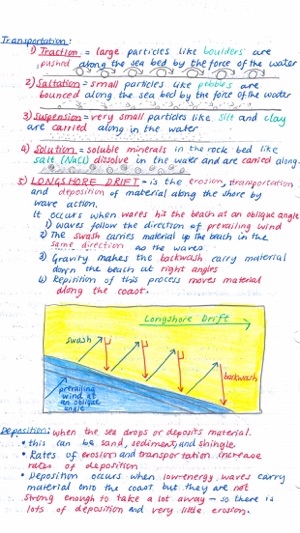 Transportation:
1) Traction = large particles like boulders are
pushed along the sea bed by the force of the water
2) Saltation = small particles like pebbles are
bounced along the sea bed by the force of the water
3) Suspension = very small particles like silt and clay
are carried along in the water
4) Solution = soluble minerals in the rock bed like
salt (NaCl) dissolve in the water and are carried along.
5) LONGSHORE DRIFT - is the erosion, transportation
and deposition of material along the shore by
wave action.
It occurs when waves hit the beach at an oblique angle
1) waves follow the direction of prevailing wind
2) The swash carries material up the beach in the
same direction as the waves.
3) Gravity makes the backwash carry material
down the beach at right angles
4) Repisition of this process moves material
along the coast.
Longshore Drift
swash
backwash
prevailing
wind at
an oblique
angle
Deposition: when the sea drops or deposits material.
• this can be sand, sediment, and shingle.
• Rates of erosion and transportation increase
rates of deposition
• Deposition occurs when low-energy waves carry
material onto the coast but they are not
strong enough to take a lot away - so there is
lots of deposition and very little erosion.